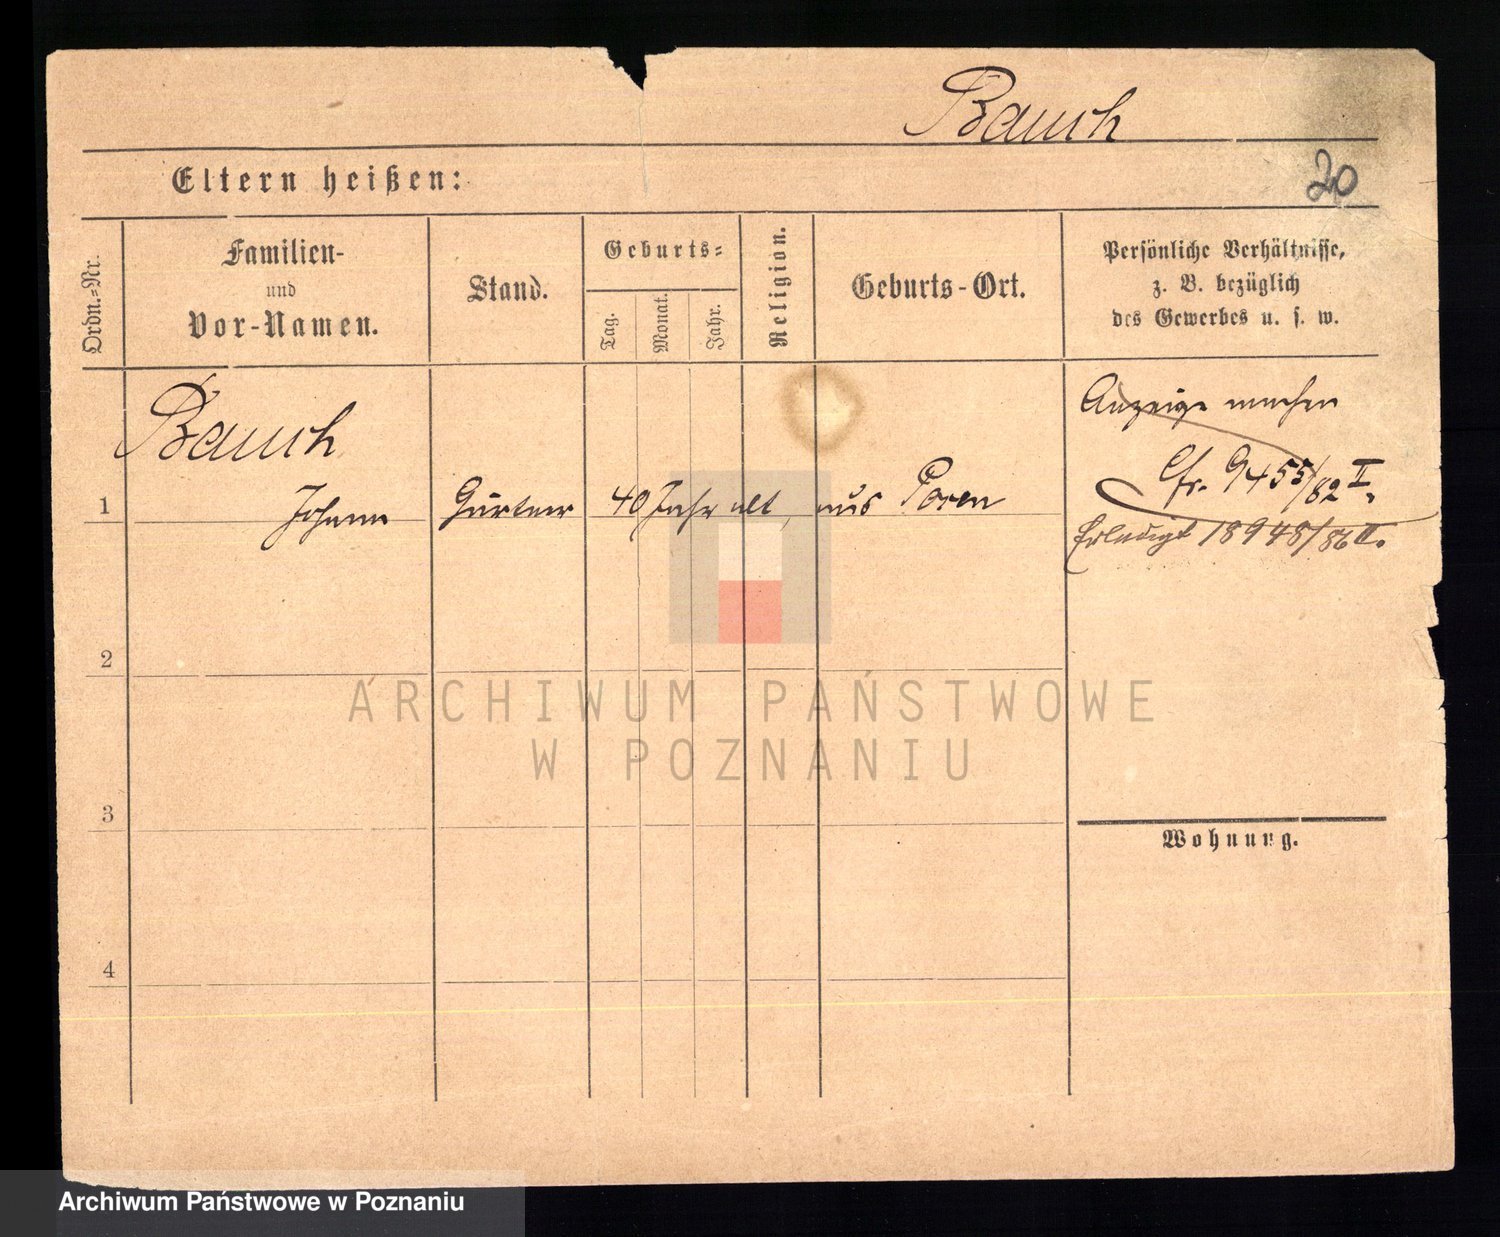 Bauch
20
Eltern heißen:
Ordn.-Nr.
Familien-
und
Vor-Namen.
Stand.
Geburts-
Tag.
Monat.
Jahr.
Religion.
Geburts-Ort.
Persönliche Verhältnisse,
z. B. bezüglich
des Gewerbes u. s. w.
Bauch
1 Johann Gärtner 40 Jahr alt, aus Posen
Anzeige machen
Cfr. 9455/82 II.
Erledigt 18948/86 II.
2
3
4
Wohnung.
ARCHIWUM PAŃSTWOWE
W POZNANIU
Archiwum Państwowe w Poznaniu